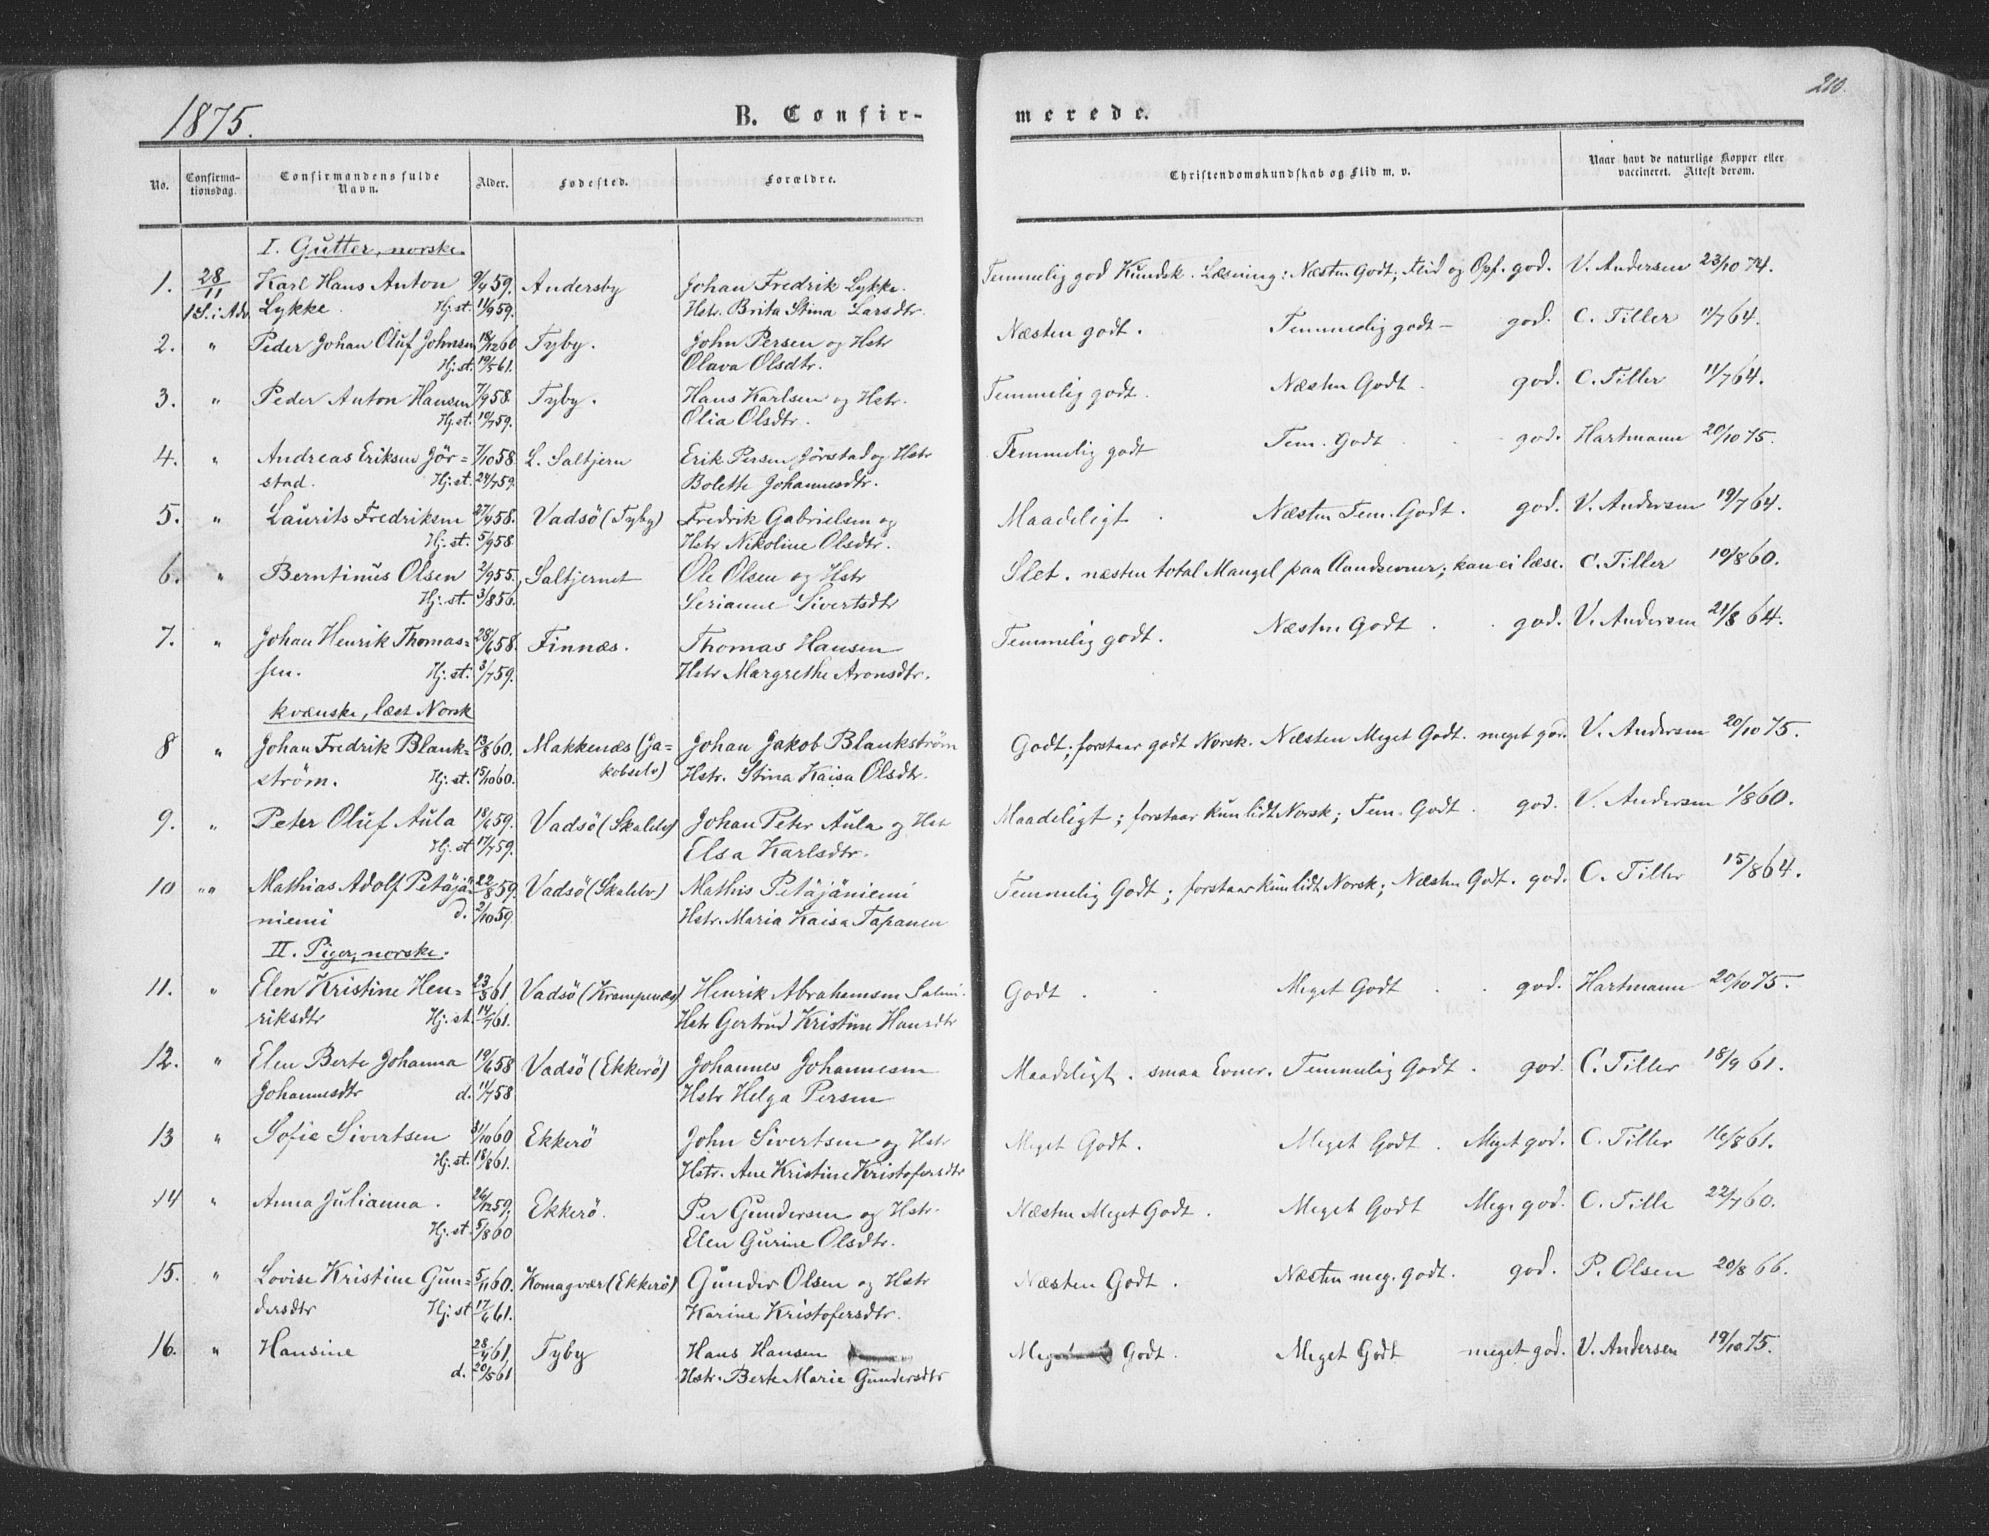 1875.
B. Confirmerede.
210.
No. Confirmationsdag. Confirmandens fulde Navn. Alder. Fødested. Forældre. Christendomskundskab og Flid m. v. Naar havt de naturlige Kopper eller vaccineret. Attest derom.
I. Gutter, norske.
1. 28/11 Karl Hans Anton 9/4 59. Andersby Johan Fredrik Lykke. Temmelig god Kundsk. Læsning: Næsten Godt; Flid og Opf. god. V. Andersen 23/10 74.
1 S. i Adv. Lykke. Hj. st. 11/9 59. Hstr. Brita Stina Larsdtr.
2. " Peder Johan Oluf Johnsen 18/12 60 Tyby. John Persen og Hstr Næsten godt. Temmelig godt – god. C. Tiller 11/7 64.
Hj. st. 19/5 61. Olava Olsdtr.
3. " Peder Anton Hansen 7/9 58. Tyby. Hans Karlsen og Hstr. Temmelig godt. Næsten Godt. god. C. Tiller 11/7 64.
Hj. st. 10/7 59. Olia Olsdtr.
4. " Andreas Eriksen Jör= 7/10 58. L. Saltjern Erik Persen Jörstad og Hstr Temmelig godt Tem. Godt. god. Hartmann 20/10 75.
stad. Hj. st. 24/7 59. Bolette Johannesdtr.
5. " Laurits Fredriksen 27/4 58. Vadsö (Tyby) Fredrik Gabrielsen og Maadeligt. Næsten Tem. Godt. god. V. Andersen 19/7 64.
Hj. st. 5/9 58. Hstr Nikoline Olsdtr.
6. " Berntinus Olsen 2/9 55. Saltjernet Ole Olsen og Hstr Slet. næsten total Mangel paa Aandsevner; kan ei læse. C. Tiller 10/8 60.
Hj. st. 3/8 56. Serianne Sivertsdtr
7. " Johan Henrik Thomas= 28/6 58. Finnæs. Thomas Hansen Temmelig godt. Næsten Godt. god. V. Andersen 21/8 64.
sen. Hj. st. 3/7 59. Hstr Margrethe Aronsdtr.
kvænske, læst Norsk
8 " Johan Fredrik Blank= 13/8 60. Makkenæs (Ja= Johan Jakob Blankström Godt; forstaar godt Norsk. Næsten Meget Godt. meget god. V. Andersen 20/10 75.
ström. Hj. st. 15/10 60. kobselv) Hstr. Stina Kaisa Olsdtr.
9. " Peter Oluf Aula 18/6 59. Vadsö (Skalelv) Johan Peter Aula og Hstr Maadeligt; forstaar kun lidt Norsk; Tem. Godt. god. V. Andersen 1/8 60.
Hj. st 17/7 59. Elsa Karlsdtr.
10 " " Mathias Adolf Petäjä 22/8 59. Vadsö (Skalelv) Mathis Petäjäniemi Temmelig Godt; forstaar kun lidt Norsk; Næsten Godt. god. C. Tiller 15/8 64.
niemi d. 2/10 59. Hstr. Maria Kaisa Tapanen
II. Piger, norske.
11. " Elen Kristine Hen= 23/3 61. Vadsö (Krampenæs) Henrik Abrahamsen Salmi. Godt. Meget Godt. god. Hartmann 20/10 75.
riksdtr Hj. st. 14/7 61. Hstr Gertrud Kristine Hansdtr
12. " Elen Berte Johanna 19/6 58 Vadsö (Ekkerö) Johannes Johannesen Maadeligt. smaa Evner. Temmelig Godt. god. C. Tiller 18/9 61.
Johannesdtr d. 11/7 58 Hstr Helga Persen
13 " Sofie Sivertsen 31/10 60 Ekkerö John Sivertsen og Hstr Meget Godt. Meget Godt. Meget god. C. Tiller 16/8 61.
Hj. st. 18/8 61. Hstr. Ane Kristine Kristofersdtr
14 " Anna Julianna. 26/12 59, Ekkerö. Per Gundersen og Hstr. Næsten Meget Godt. Meget Godt Meg. god. C. Tille 22/7 60.
Hj. st. 5/8 60 Elen Gurine Olsdtr.
15. " Lovise Kristine Gun= 5/11 60. Komagvær (Ekkerö) Gunder Olsen og Hstr Næsten Godt. Næsten meg. godt. god. P. Olsen 20/8 66.
dersdtr Hj. st 17/6 61. Karine Kristofersdtr.
16. " Hansine 28/4 61, Tyby Hans Hansen Meget Godt. Meget Godt meget god. V. Andersen 19/10 75.
d. 20/5 61 Hstr. Berte Marie Gundersdtr